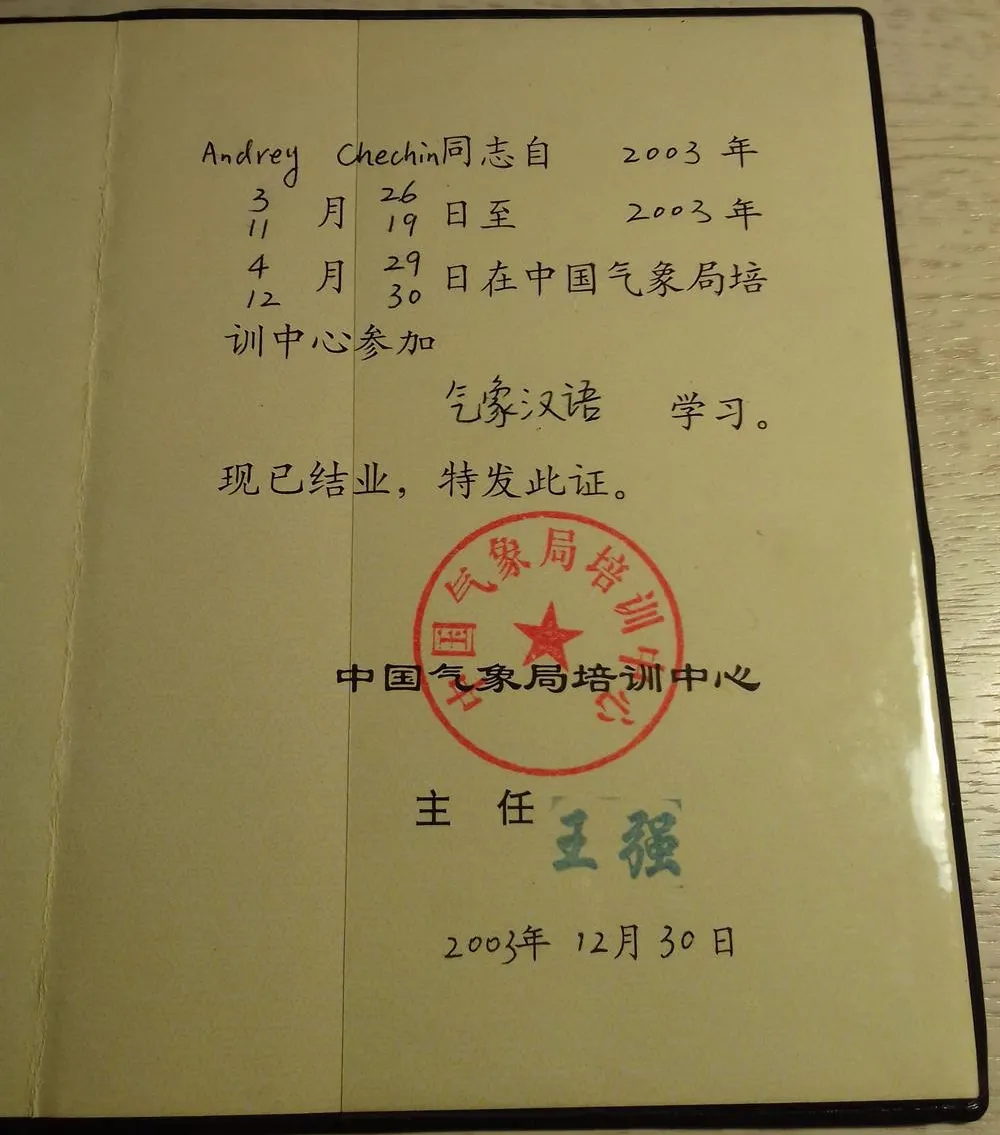 Andrey Chechin同志自 2003 年
3 26
11 月 19 日至 2003 年
4 29
12 月 30 日在中国气象局培
训中心参加
气象汉语 学习。
现已结业，特发此证。
中国气象局培训中心
中国气象局培训中心
主 任 王强
2003年 12月 30日